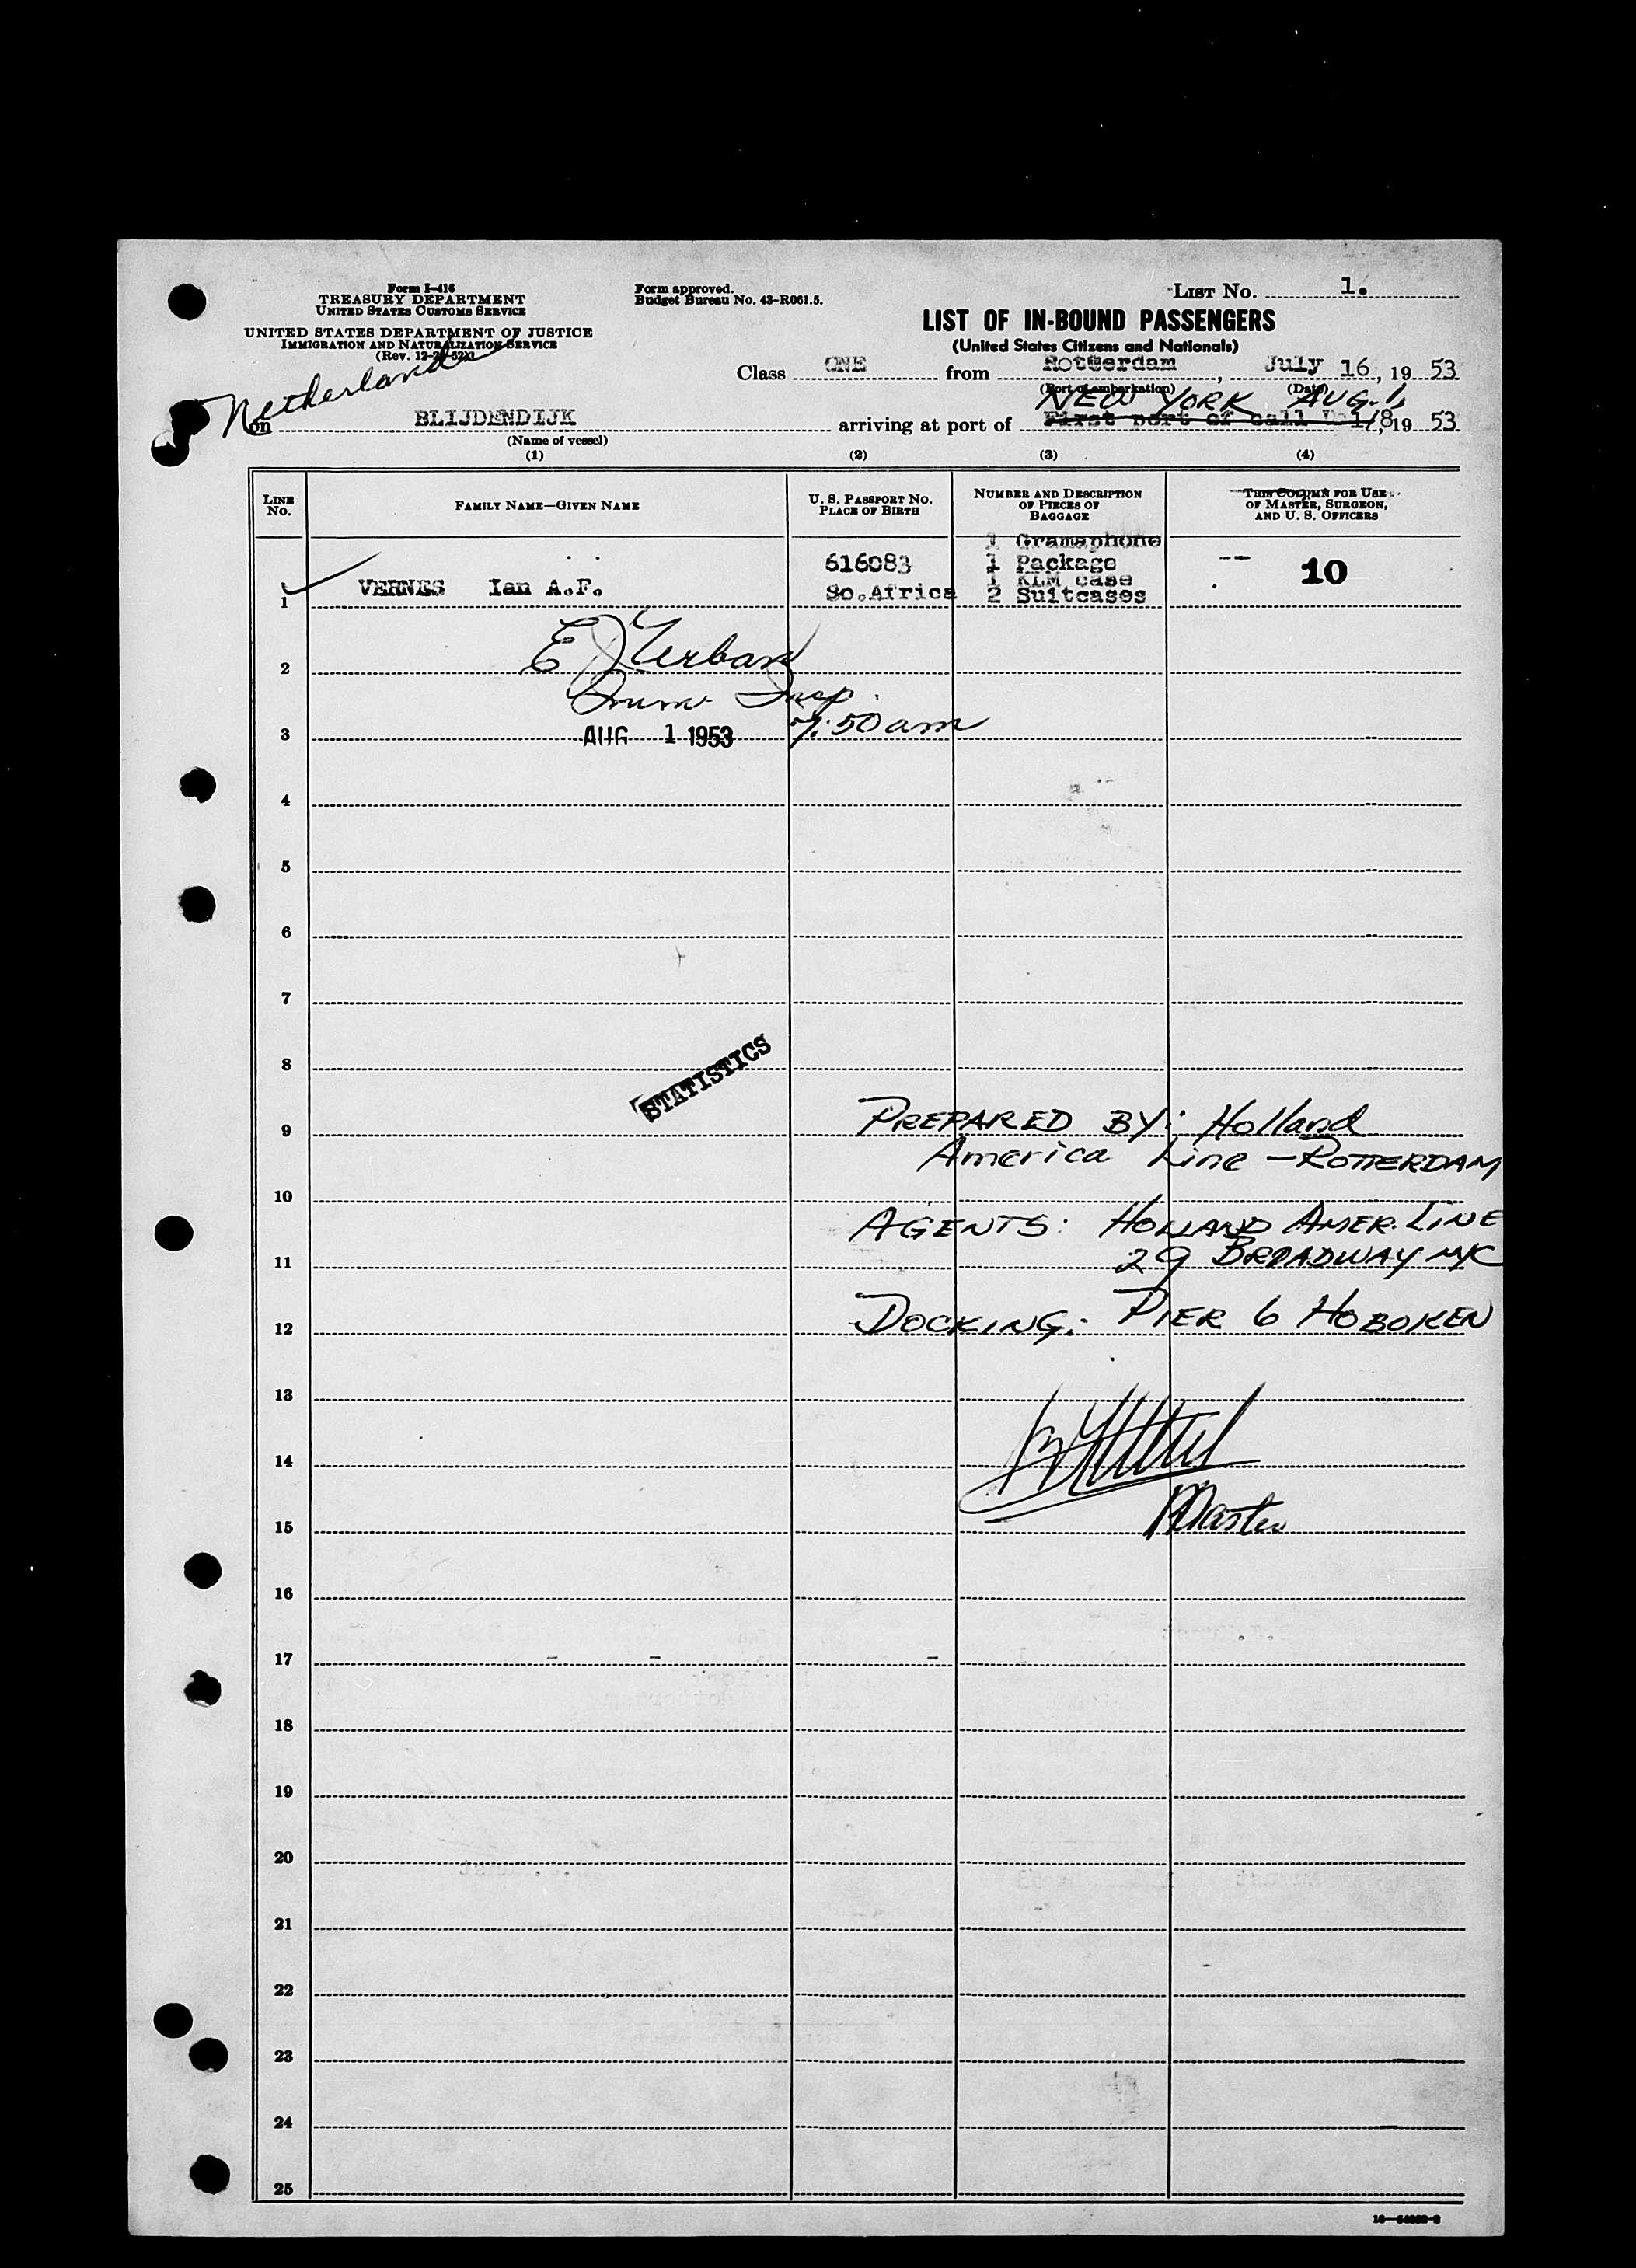 Form I-416
TREASURY DEPARTMENT
UNITED STATES CUSTOMS SERVICE
UNITED STATES DEPARTMENT OF JUSTICE
IMMIGRATION AND NATURALIZATION SERVICE
(Rev. 12-2-52)
Form approved.
Budget Bureau No. 43-R061.5.
LIST NO. 1.
LIST OF IN-BOUND PASSENGERS
(United States Citizens and Nationals)
Class ONE from Rotterdam, July 16, 19 53
(Port of embarkation) (Date)
Netherland
NEW YORK AUG. 1,
on BLIJDENDIJK arriving at port of First port of call 1/8, 19 53
(Name of vessel)
(1) (2) (3) (4)
LINE NO.
FAMILY NAME—GIVEN NAME
U. S. PASSPORT NO.
PLACE OF BIRTH
NUMBER AND DESCRIPTION
OF PIECES OF
BAGGAGE
THIS COLUMN FOR USE
OF MASTER, SURGEON,
AND U. S. OFFICERS
1 VERNES Ian A.F.
616083
So.Africa
1 Gramaphone
1 Package
1 KLM case
2 Suitcases
-- 10
E J Verban
Imm Insp.
2
AUG 1 1953 7:50 am
3
4
5
6
7
8
STATISTICS
PREPARED BY: Holland
9
America Line – ROTTERDAM
10
AGENTS: HOLLAND AMER. LINE
29 BROADWAY NYC
11
DOCKING: PIER 6 HOBOKEN
12
13
14
Master
15
16
17
18
19
20
21
22
23
24
25